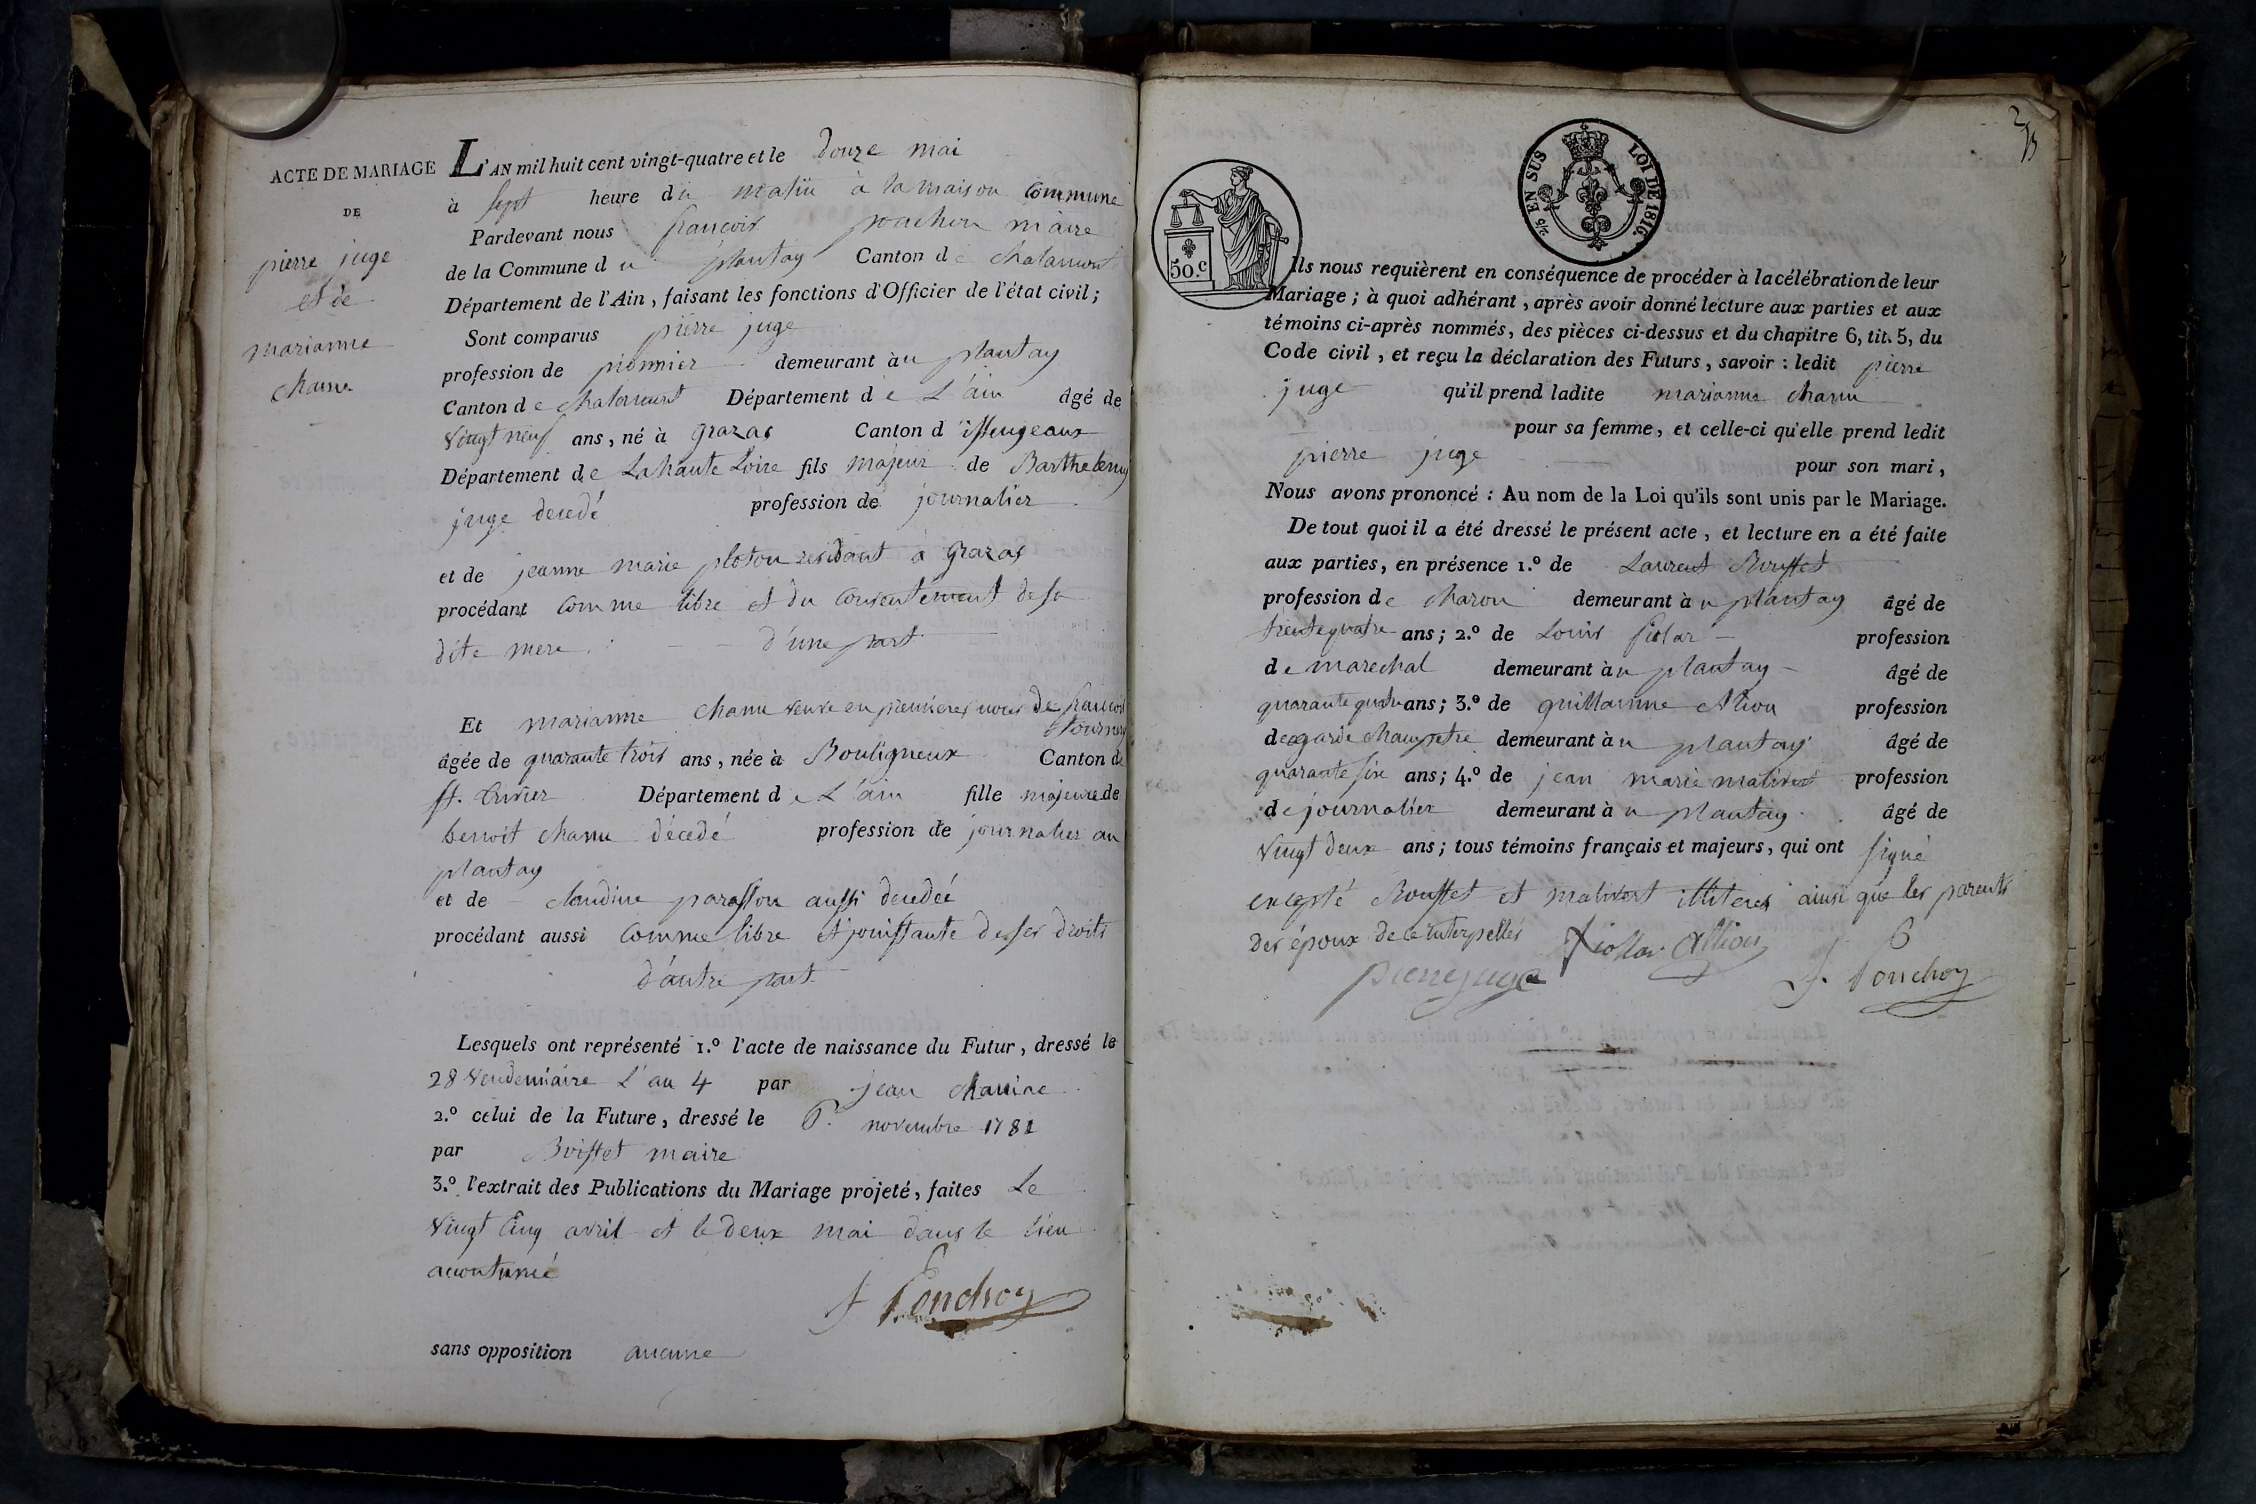 ACTE DE MARIAGE
DE
pierre juge
et de
marianne
chanu
L'AN mil huit cent vingt-quatre et le douze mai
à sept heure du matin à la maison commune
Pardevant nous françois ponchon maire
de la Commune du plantay Canton de chalamont
Département de l'Ain, faisant les fonctions d'Officier de l'état civil;
Sont comparus pierre juge
profession de pionnier demeurant àu plantay
Canton de chalamont Département de L'ain âgé de
vingt neuf ans, né à grazas Canton d'issengeaux
Département de La haute Loire fils majeur de Barthelemy
juge decedé profession de journalier
et de jeanne marie ploton residant à grazas
procédant comme libre et du consentement de sa
dite mere d'une part
Et marianne chanu veuve en premieres noces de françois
tournier
âgée de quarante trois ans, née à Bouligneux Canton de
st. trivier Département de L'ain fille majeure de
benoit chanu décedé profession de journalier au
plantay
et de claudine parasson aussi decedée
procédant aussi comme libre et jouissante de ses droits
d'autre part
Lesquels ont représenté 1.º l'acte de naissance du Futur, dressé le
28 vendemiaire L'an 4 par jean
2.º celui de la Future, dressé le 6. novembre 1781
par Boisset maire
3.º l'extrait des Publications du Mariage projeté, faites Le
vingt cinq avril et le deux mai dans le lieu
acoutumé
f Ponchon
sans opposition aucune
2/5 EN SUS LOI DE 1816.
50.c
Ils nous requièrent en conséquence de procéder à la célébration de leur
Mariage; à quoi adhérant, après avoir donné lecture aux parties et aux
témoins ci-après nommés, des pièces ci-dessus et du chapitre 6, tit. 5, du
Code civil, et reçu la déclaration des Futurs, savoir : ledit pierre
juge qu'il prend ladite marianne chanu
pour sa femme, et celle-ci qu'elle prend ledit
pierre juge pour son mari,
Nous avons prononcé : Au nom de la Loi qu'ils sont unis par le Mariage.
De tout quoi il a été dressé le présent acte, et lecture en a été faite
aux parties, en présence 1.º de Laurent Rousset
profession de charon demeurant àu plantay âgé de
trente quatre ans; 2.º de Louis fiolar profession
de marechal demeurant àu plantay âgé de
quarante quatre ans; 3.º de guillaume Alion profession
de garde champetre demeurant àu plantay âgé de
quarante six ans; 4.º de jean marie malivert profession
de journalier demeurant àu plantay âgé de
vingt deux ans; tous témoins français et majeurs, qui ont signé
excepté Rousset et malivert illiterés ainsi que les parents
des époux de ce interpellés fiollar Allion
pierre juge f. Ponchon